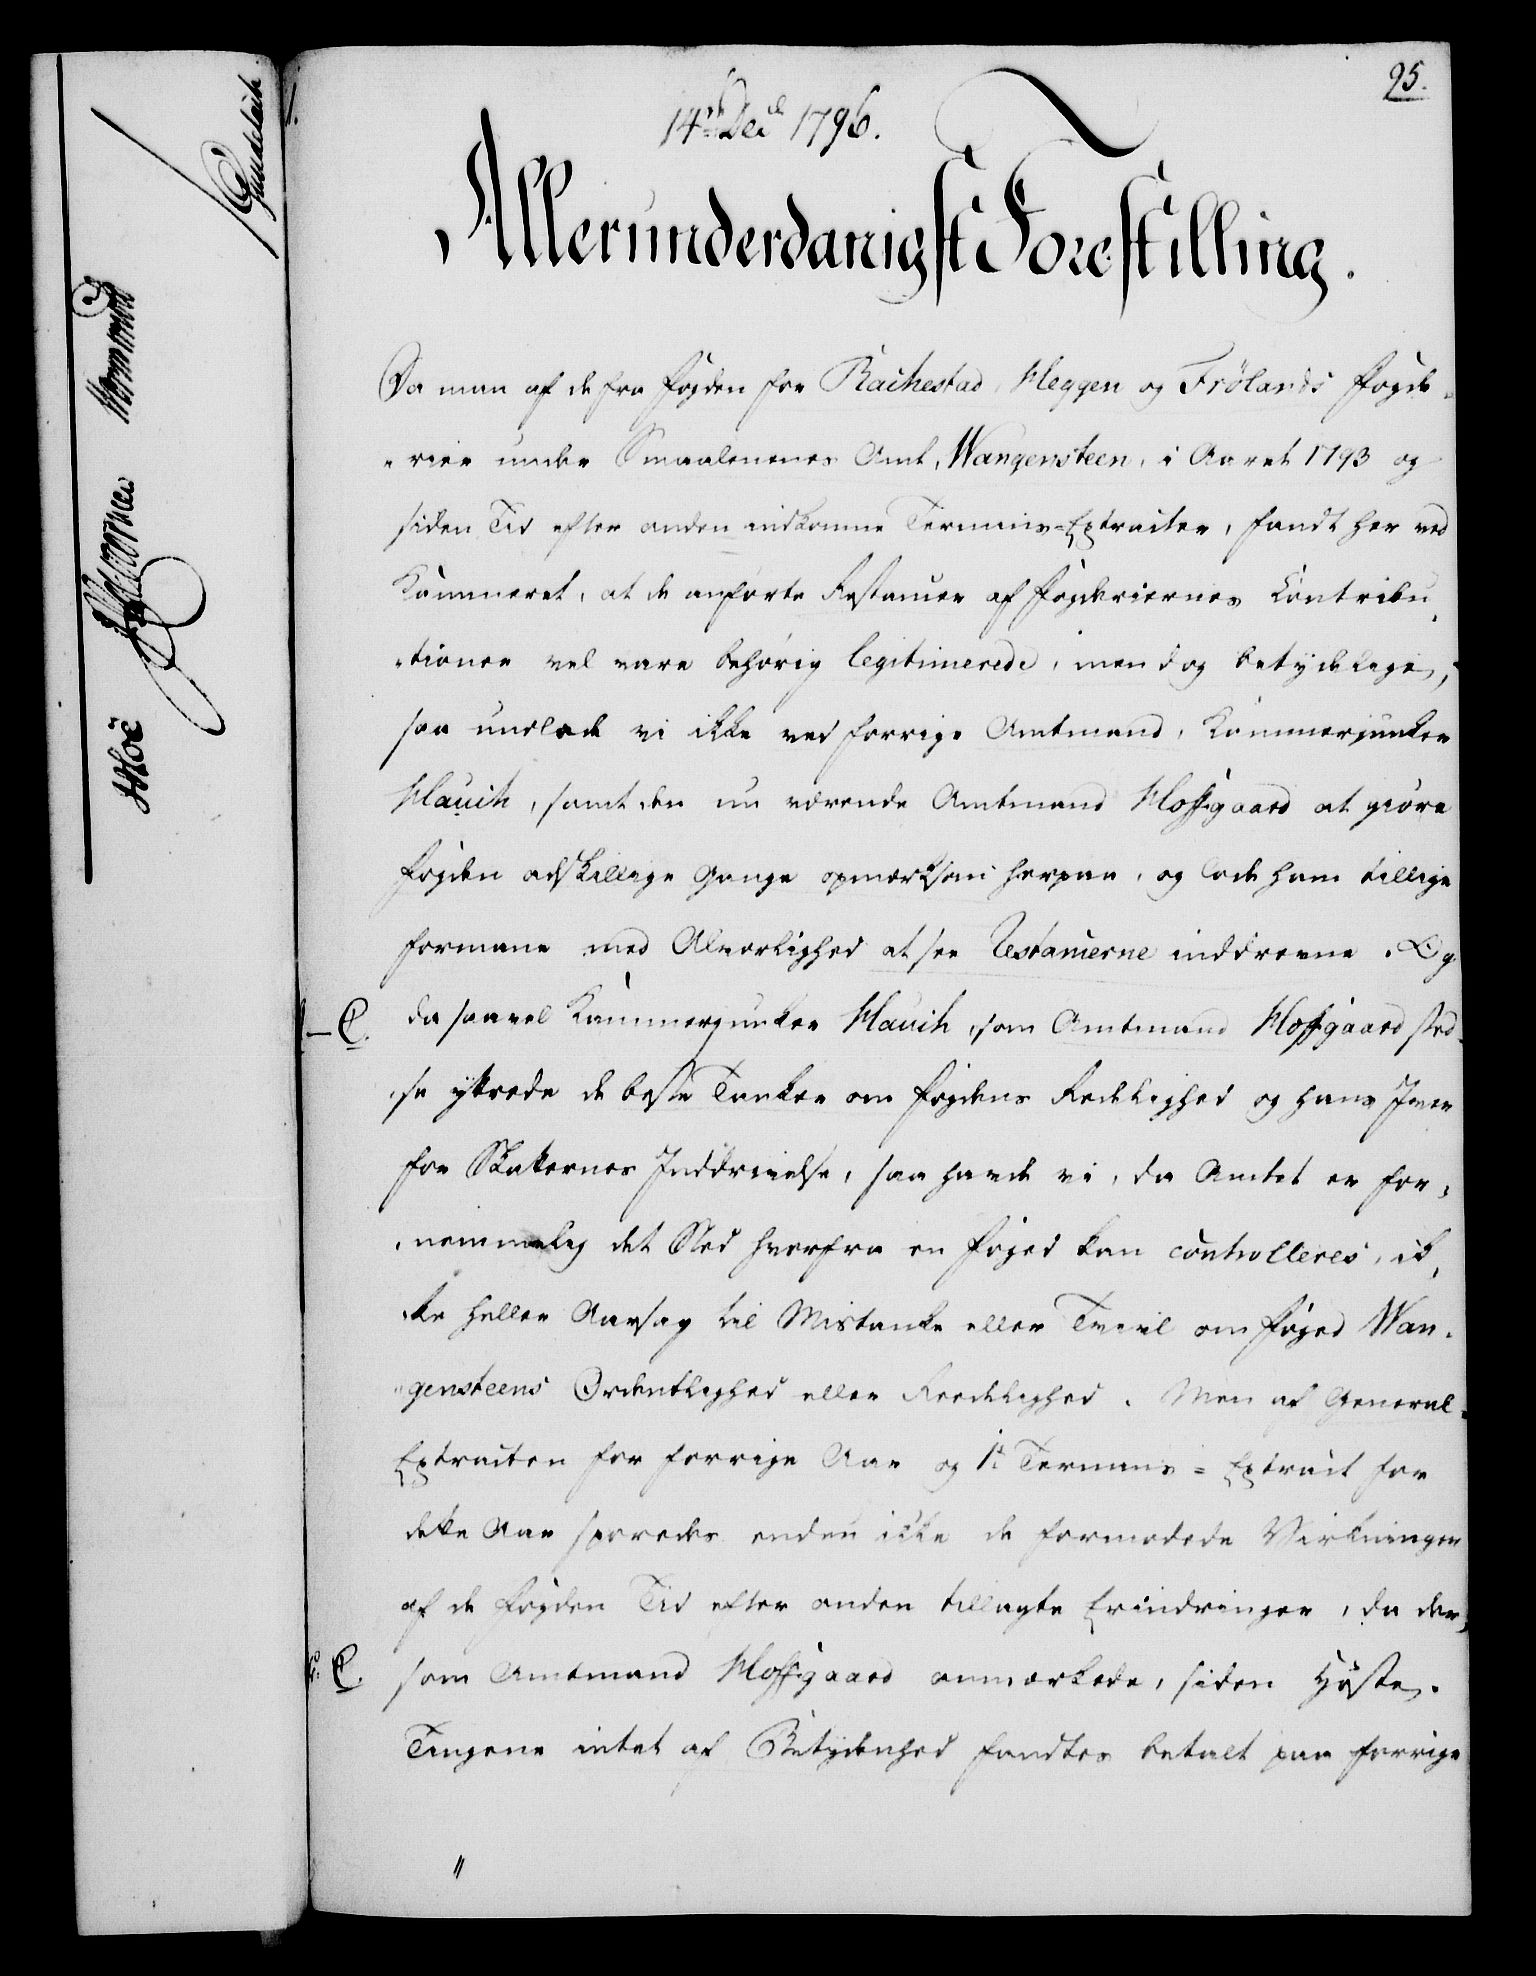 95.
14de Decbr 1796.
Allerunderdanigst Forestilling.
Da man af de fra Fogden for Rachestad, Heggen og Frølands Fogde-
-rier under Smaalenenes Amt, Wangensteen, i Aaret 1793 og
siden Tid efter anden indkomne Termins-Extracter, fandt her ved
Kammeret, at de anførte Restancer af Fogderiernes Contribu-
-tioner vel vare behørig legitimerede, men dog betydelige,
saa undlode vi ikke ved forrige Amtmand, Kammerjunker
Hauch, samt den nu værende Amtmand Hoffgaard at giøre
Fogden adskillige Gange opmærksom herpaa, og lode ham tillige
formane med Alvorlighed at see Restancerne inddrevne. Og
da saavel Kammerjunker Hauch, som Amtmand Hoffgaard sted-
-se yttrede de beste Tanker om Fogdens Redelighed og hans Iver
for Skatternes Inddrivelse, saa havde vi, da Amtet er for-
-nemmelig det Sted hvorfra en Foged kan controlleres, ik-
-ke heller Aarsag til Mistanke eller Tvivl om Foged Wan-
-gensteens Ordentlighed eller Reedelighed. Men af General-
Extracten for forrige Aar og 1ste Termins-Extract for
dette Aar sporedes endnu ikke de formodede Virkninger
af de Fogden Tid efter anden tillagte Erindringer, da der,
som Amtmand Hoffgaard anmærkede, siden Høste-
Tingene intet af Betydenhed fandtes betalt paa forrige